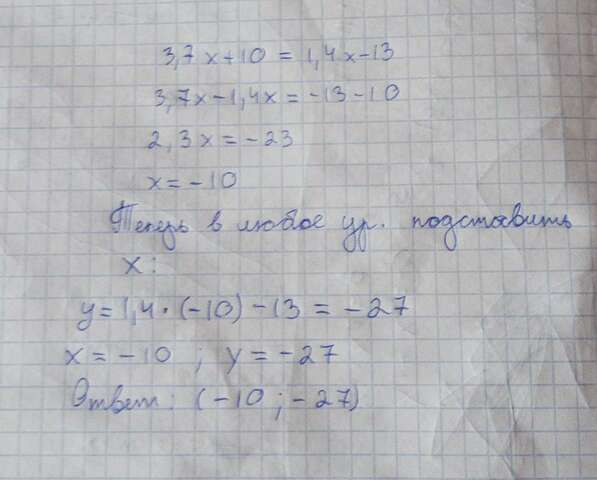 3,7x+10 = 1,4x-13
3,7x-1,4x = -13-10
2,3x = -23
x = -10
Теперь в любое ур. подставить
x:
y = 1,4 · (-10) - 13 = -27
x = -10 ; y = -27
Ответ: (-10 ; -27)